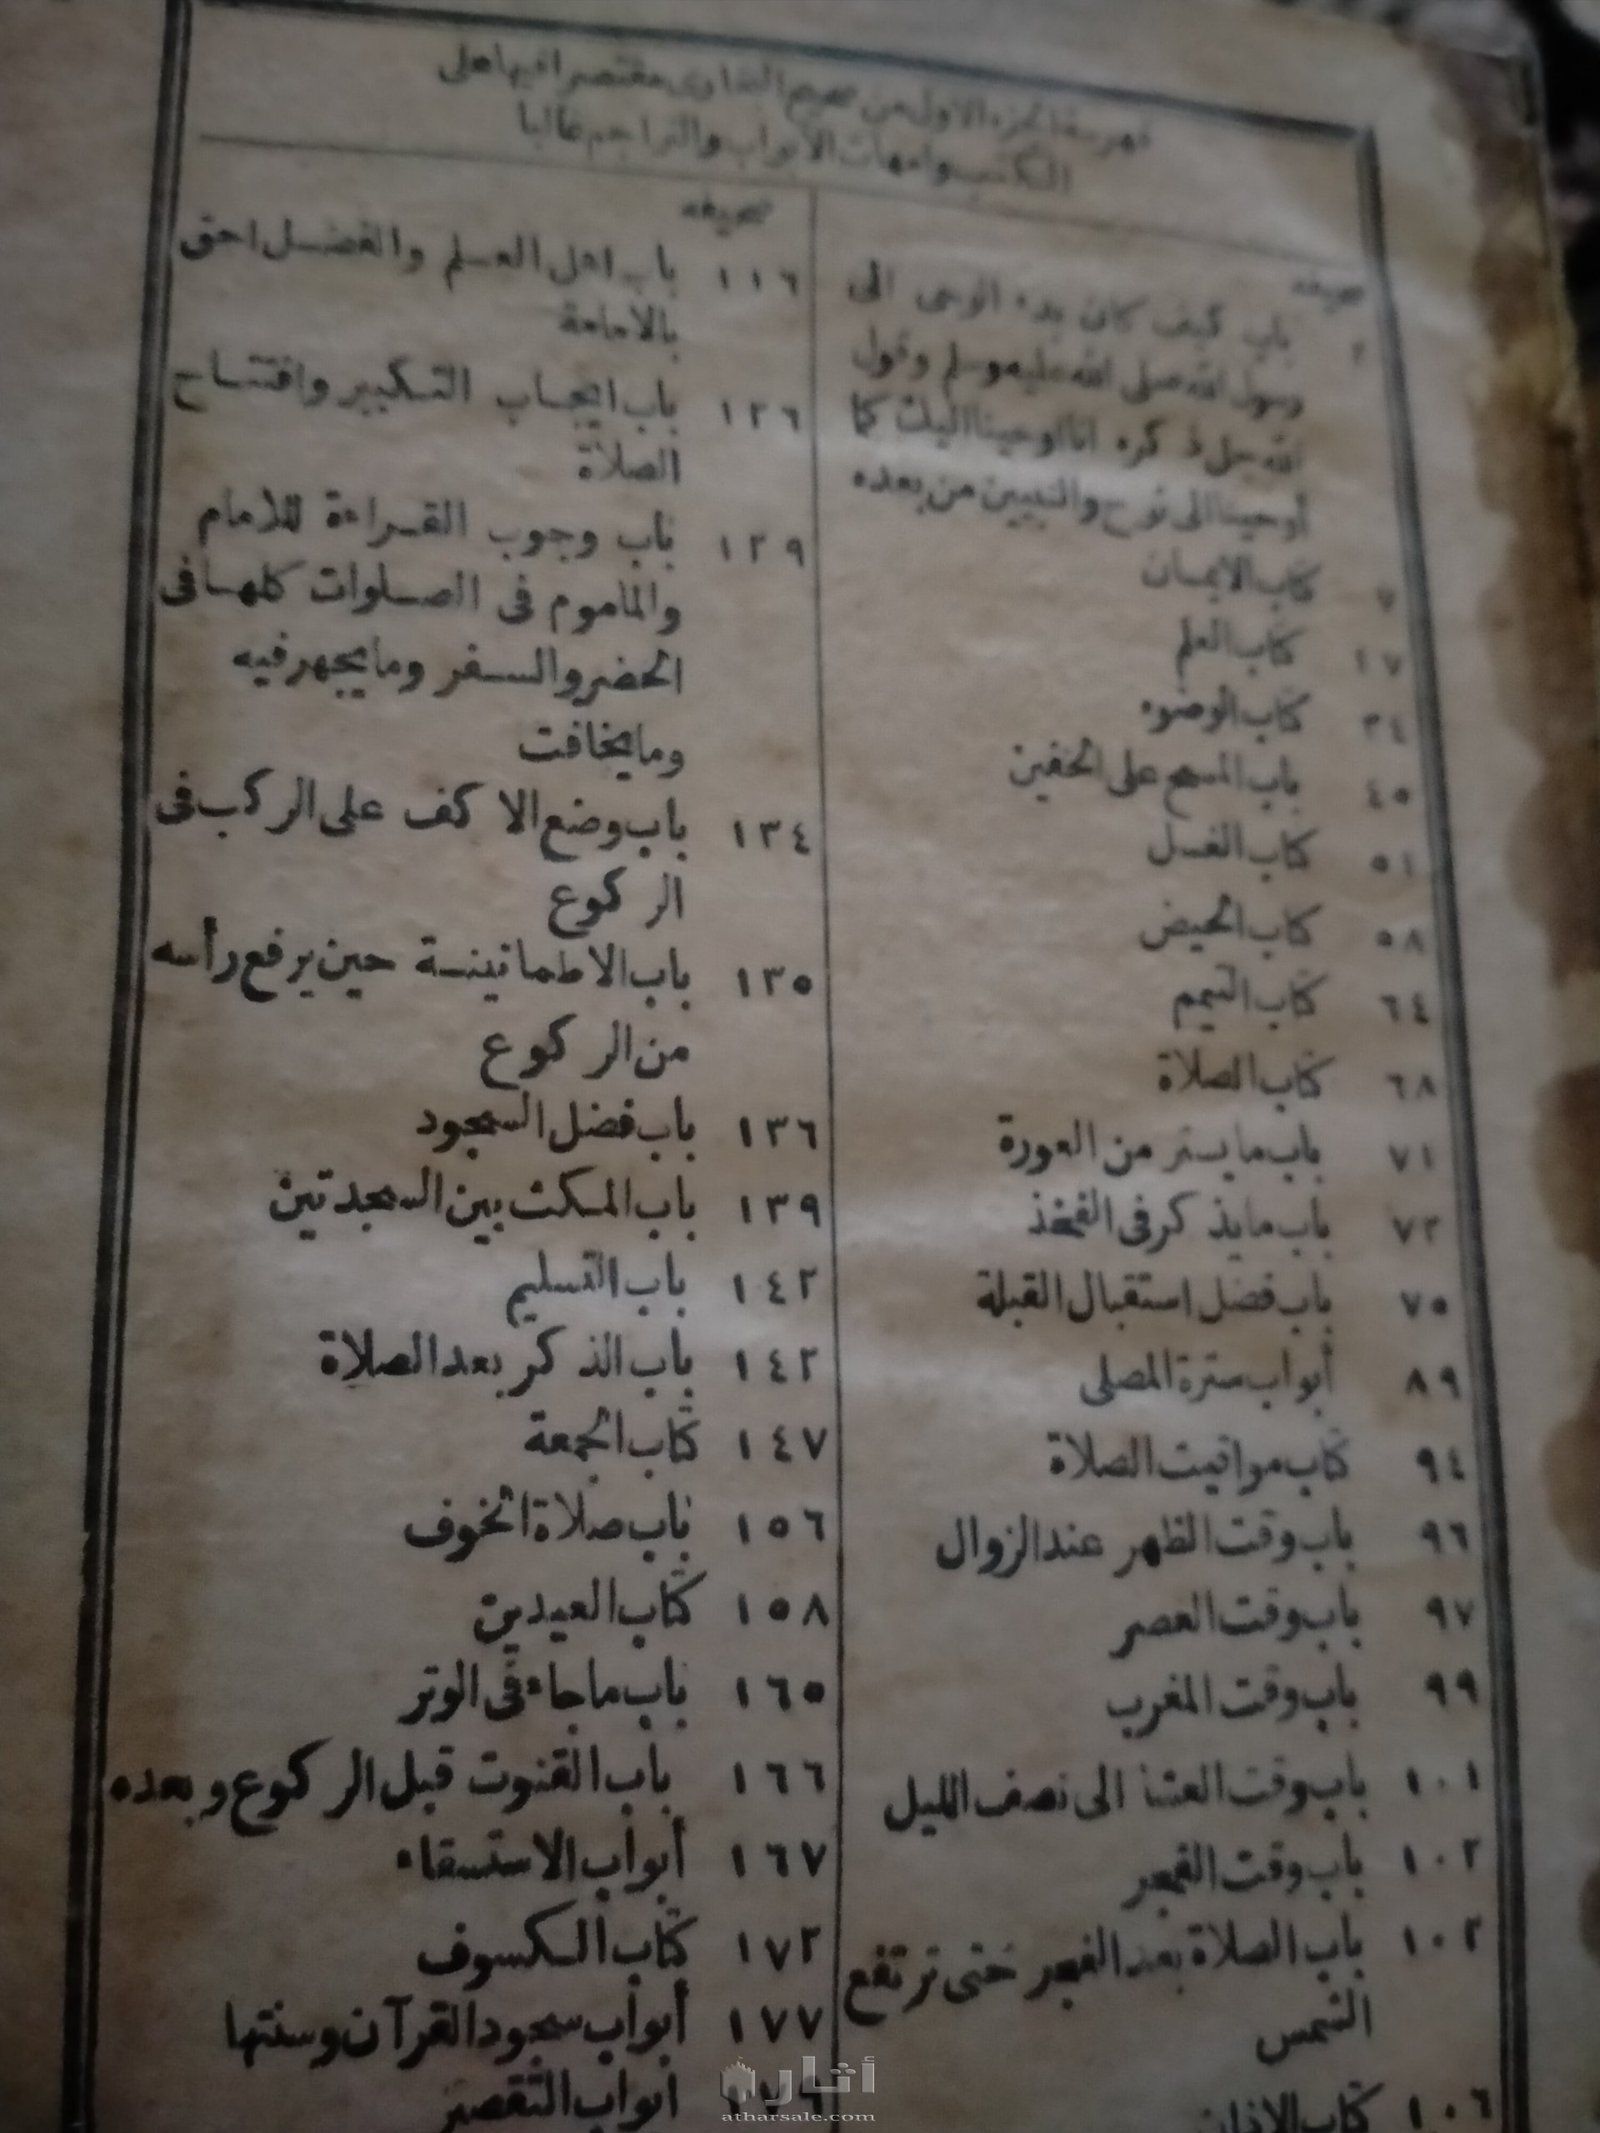 فهرسة الجزء الاول من صحيح البخارى مقتصرا فيها على
الكتب وامهات الأبواب والتراجم غالبا
صحيفه
٢ باب كيف كان بدء الوحى الى
رسول الله صلى الله عليه وسلم وقول
الله جل ذكره انا اوحينا اليك كما
أوحينا الى نوح والنبيين من بعده
٧ كتاب الايمان
١٧ كتاب العلم
٣٤ كتاب الوضوء
٤٥ باب المسح على الخفين
٥١ كتاب الغسل
٥٨ كتاب الحيض
٦٤ كتاب التيمم
٦٨ كتاب الصلاة
٧١ باب ما يستر من العورة
٧٢ باب ما يذكر فى الفخذ
٧٥ باب فضل استقبال القبلة
٨٩ أبواب سترة المصلى
٩٤ كتاب مواقيت الصلاة
٩٦ باب وقت الظهر عند الزوال
٩٧ باب وقت العصر
٩٩ باب وقت المغرب
١٠١ باب وقت العشا الى نصف الليل
١٠٢ باب وقت الفجر
١٠٢ باب الصلاة بعد الفجر حتى ترتفع
الشمس
١٠٦ كتاب الاذان
صحيفه
١١٦ باب اهل العلم والفضل احق
بالامامة
١٢٦ باب ايجاب التكبير وافتتاح
الصلاة
١٢٩ باب وجوب القراءة للامام
والماموم فى الصلوات كلها فى
الحضر والسفر وما يجهر فيه
وما يخافت
١٣٤ باب وضع الاكف على الركب فى
الركوع
١٣٥ باب الاطمانينة حين يرفع رأسه
من الركوع
١٣٦ باب فضل السجود
١٣٩ باب المكث بين السجدتين
١٤٢ باب التسليم
١٤٢ باب الذكر بعد الصلاة
١٤٧ كتاب الجمعة
١٥٦ باب صلاة الخوف
١٥٨ كتاب العيدين
١٦٥ باب ما جاء فى الوتر
١٦٦ باب القنوت قبل الركوع وبعده
١٦٧ أبواب الاستسقاء
١٧٢ كتاب الكسوف
١٧٧ أبواب سجود القرآن وسنتها
أبواب التقصير
أثار
atharsale.com